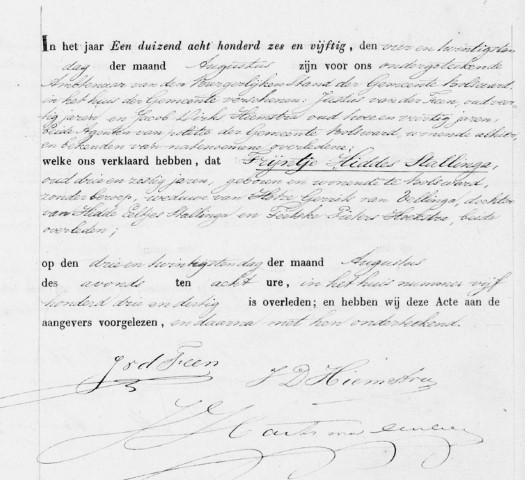 In het jaar Een duizend acht honderd zes en vijftig, den vier en twintigsten
dag der maand Augustus zijn voor ons ondergeteekende
Ambtenaar van den Burgerlijken Stand der Gemeente Bolsward,
in het huis der Gemeente verschenen: Justus van der Feen, oud veer-
tig jaren, en Jacob Dirk Hiemstra oud twee en veertig jaren,
beide Agenten van politie der Gemeente Bolsward, wonende alhier,
en bekenden van natenoemene overledene;
welke ons verklaard hebben, dat Trijntje Hiddes Stallinga,
oud drie en zestig jaren, geboren en wonende te Bolsward,
zonder beroep, weduwe van Gerrit van dochter
van Hidde Eeltjes Stallinga en Pieters Hoekstra, beide
overleden;
op den drie en twintigsten dag der maand Augustus
des avonds ten acht ure, in het huis nummer vijf
honderd drie en dertig is overleden; en hebben wij deze Acte aan de
aangevers voorgelezen, en daarna met hen onderteekend.
J v d Feen
J D Hiemstra